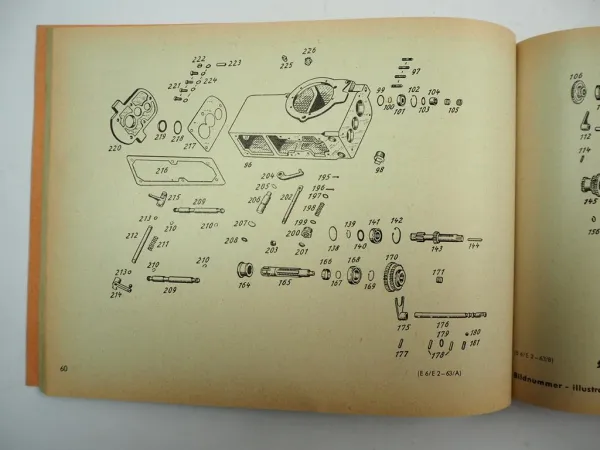 222 223 226
225
221 224 97
99 102 104
100 101 103 105
220 219 218 217
216 96 98
204 195
205 196
215 209 206 202 197
198
213 210 210 207 199
212 211 208 203 201 200 138 139 140 141 142 143 144
213 210 210
214 209 164 165 166 167 168 169 170 171
175 176
179 180
177 178 181
(E 6/E 2-63/A)
60
106
112
114
145
156
(E 6/E 2-63/B)
Bildnummer - illustra